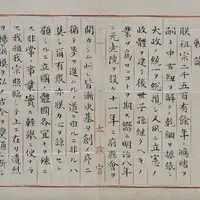 勅諭
朕祖宗二千五百有餘年ノ鴻緒ヲ
嗣キ中古紐ヲ解クノ乾綱ヲ振張シ
大政ノ統一ヲ總攬シ又夙ニ立憲ノ
政體ヲ建テ後世子孫繼クヘキノ
業ヲ爲サンコトヲ期ス嚮ニ明治八年
ニ元老院ヲ設ケ十一年ニ府縣會ヲ
太政官
開カシム此レ皆漸次基ヲ創メ序ニ
循テ歩ヲ進ムルノ道ニ由ルニ非サルハ
莫シ爾有衆亦朕カ心ヲ諒トセン
顧ミルニ立國ノ體國各宜キヲ殊ニス
非常ノ事業實ニ輕擧ニ便ナラス
我祖我宗照臨シテ上ニ在リ遺烈
ヲ揚ケ洪模ヲ弘メ古今ヲ變通シ